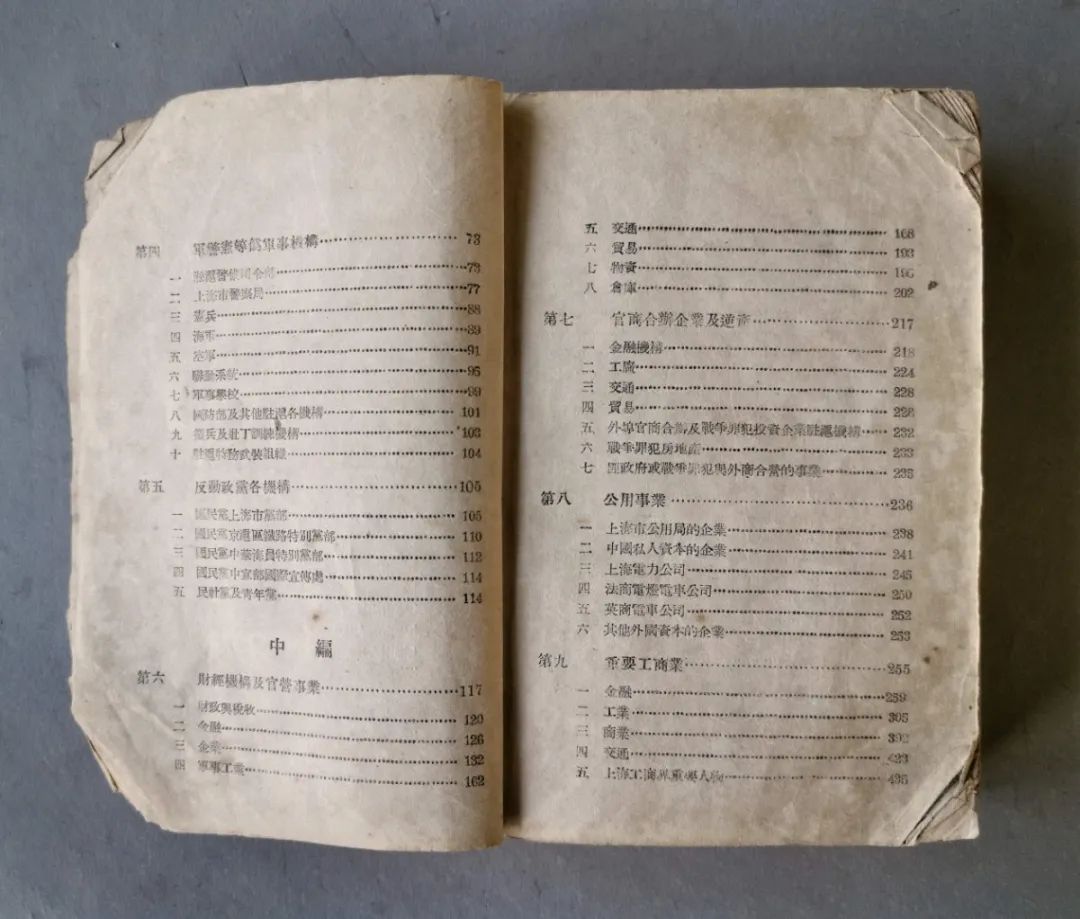 第四 軍警憲等僞軍事機構 73
一 淞滬警備司令部 73
二 上海市警察局 77
三 憲兵 88
四 海軍 89
五 空軍 91
六 聯勤系統 95
七 軍事學校 99
八 國防部及其他駐滬各機構 101
九 徵兵及壯丁訓練機構 103
十 駐滬特務武裝組織 104
第五 反動政黨各機構 105
一 國民黨上海市黨部 105
二 國民黨京滬區鐵路特別黨部 110
三 國民黨中華海員特別黨部 112
四 國民黨中宣部國際宣傳處 114
五 民社黨及青年黨 114
中編
第六 財經機構及官營事業 117
一 財政與稅收 120
二 金融 126
三 企業 132
四 軍事工業 162
五 交通 168
六 貿易 193
七 物資 195
八 倉庫 202
第七 官商合辦企業及逆產 217
一 金融機構 218
二 工廠 224
三 交通 228
四 貿易 228
五 外埠官商合辦及戰爭罪犯投資企業駐滬機構 232
六 戰爭罪犯房地產 233
七 政府或戰爭罪犯與外商合營的事業 235
第八 公用事業 236
一 上海市公用局的企業 238
二 中國私人資本的企業 241
三 上海電力公司 245
四 法商電燈電車公司 250
五 英商電車公司 252
六 其他外國資本的企業 253
第九 重要工商業 255
一 金融 259
二 工業 305
三 商業 392
四 交通 423
五 上海工商界重要人物 435